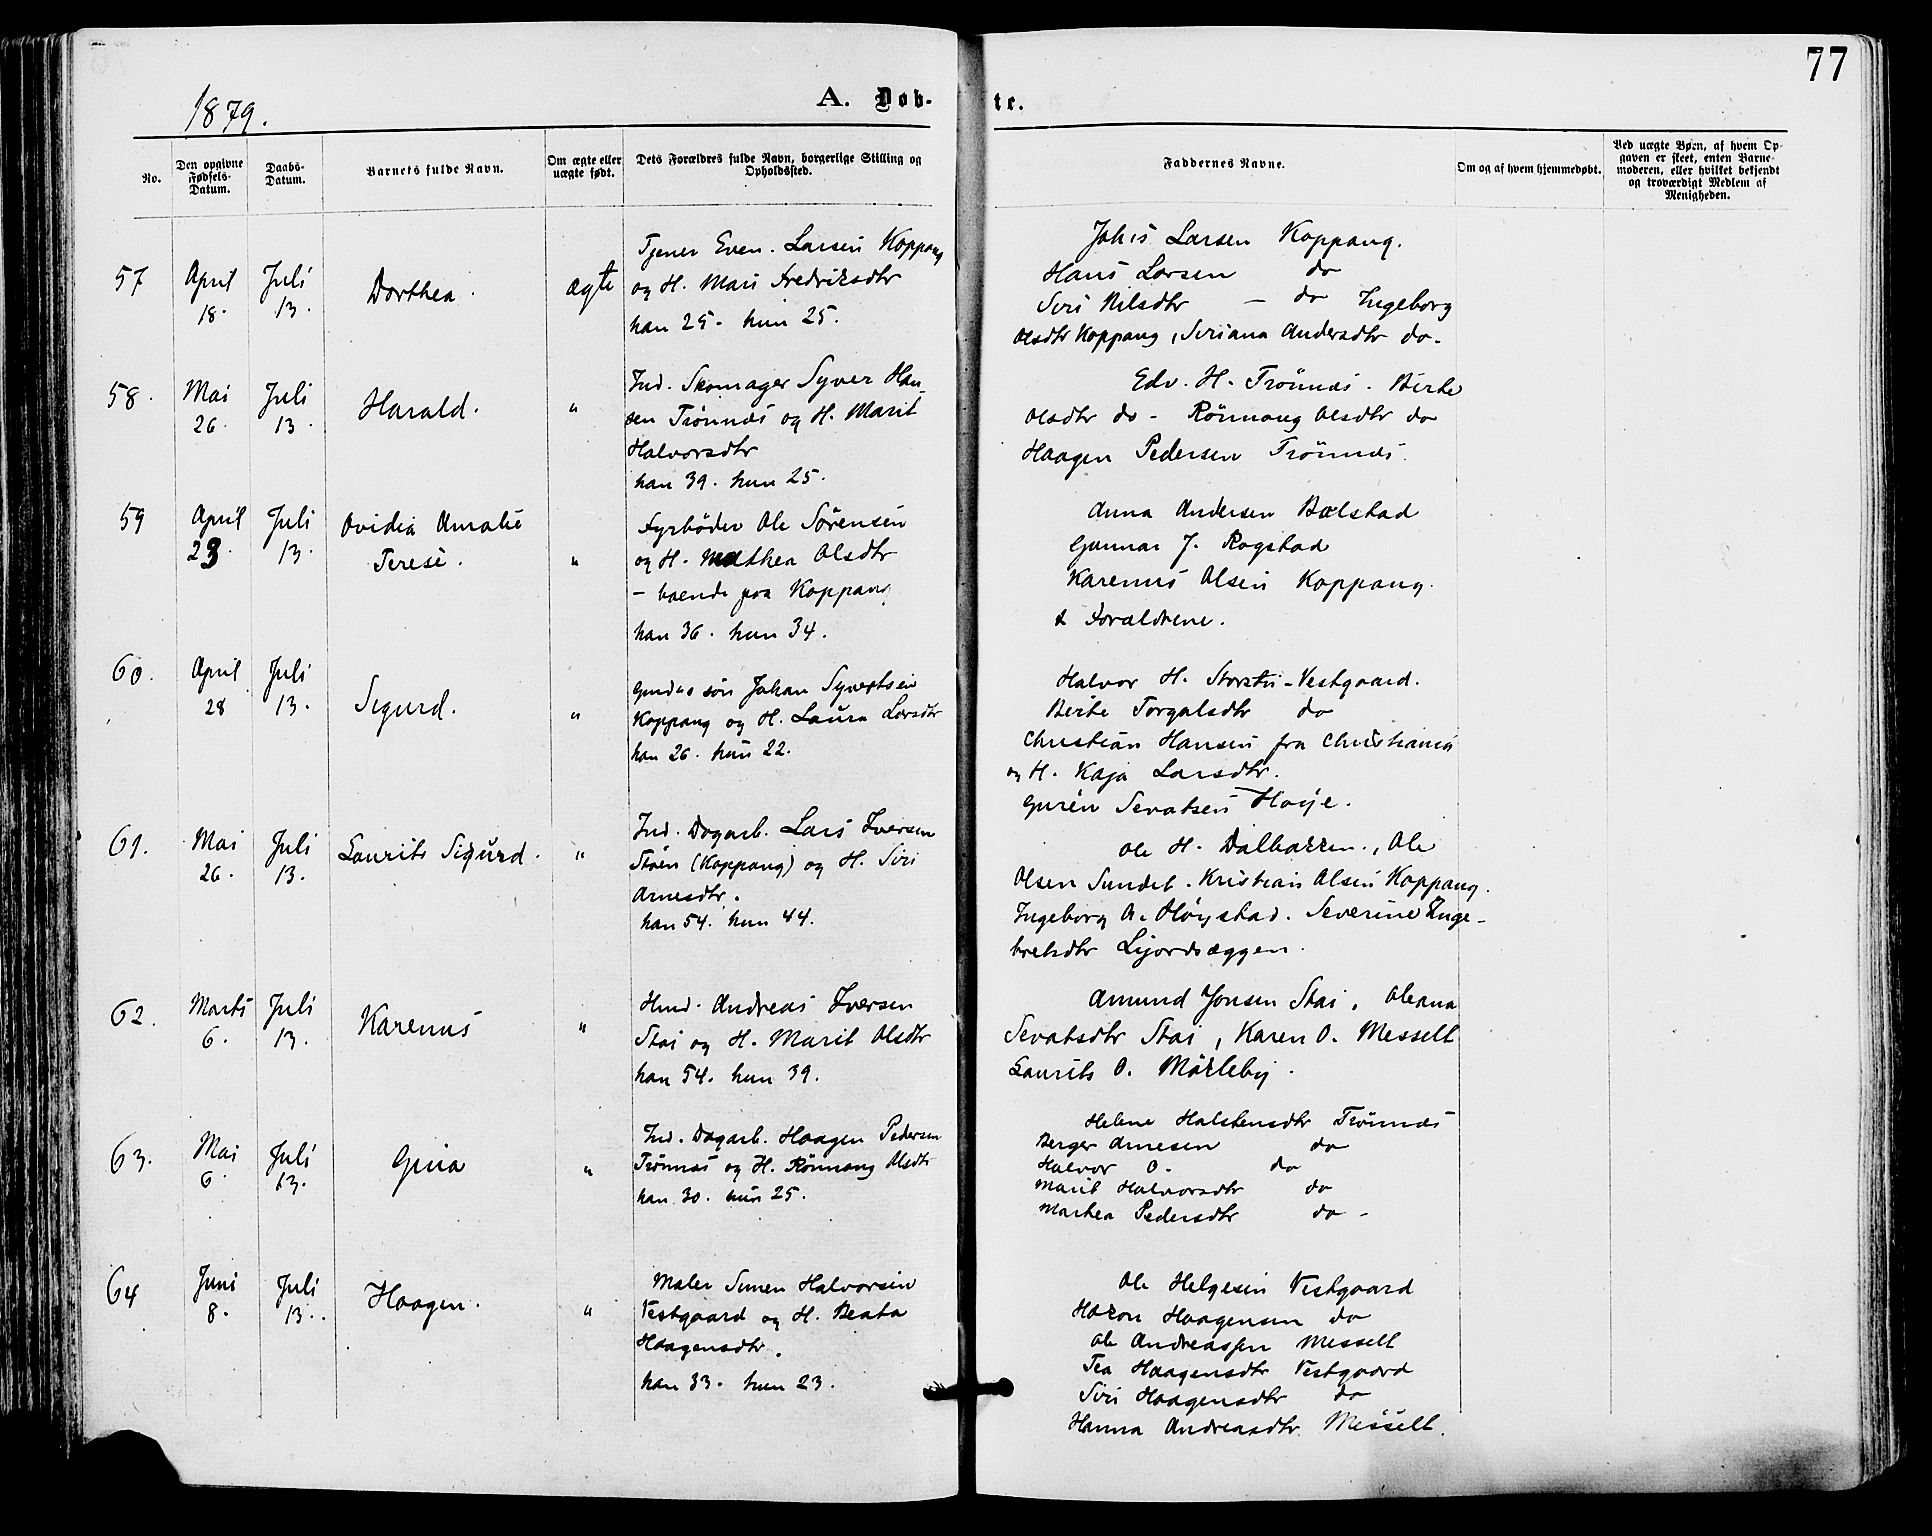 77
1879.
A. Døb-
te.
No.
Den opgivne Fødsels-Datum.
Daabs-Datum.
Barnets fulde Navn.
Om ægte eller uægte født.
Dets Forældres fulde Navn, borgerlige Stilling og Opholdssted.
Faddernes Navne.
Om og af hvem hjemmedøbt.
Ved uægte Børn, af hvem Opgaven er skeet, enten Barnemoderen, eller hvilket bekjendt og troværdigt Medlem af Menigheden.
57
April 18.
Juli 13.
Dorthea.
ægte
Tjener Even Larsen Koppang
og H. Mari Fredriksdtr
han 25. hun 25.
Johs Larsen Koppang.
Hans Larsen do
Siri Nilsdtr — do Ingeborg
Olsdtr Koppang, Seriana Andersdtr do.
58.
Mai 26.
Juli 13.
Harald.
"
Ind. Skomager Syver Han-
sen Trønnæs og H. Marit
Halvorsdtr
han 39. hun 25.
Edv. H. Trønnæs. Birte
Olsdtr do - Rønnaug Olsdtr do
Haagen Pedersen Trønnæs.
59
April 23.
Juli 13.
Ovidia Amalie
Terese.
"
Fyrbøder Ole Sørensen
og H. Mathea Olsdtr
- boende paa Koppang
han 36. hun 34.
Anna Andersen Bælstad
Gunnar J. Rogstad
Karenus Olsen Koppang.
& Forældrene.
60.
April 28
Juli 13.
Sigurd.
"
Johan Syvertsen
Koppang og H. Laura Larsdtr
han 26. hun 22.
Halvor H. Storstu-Vestgaard.
Birte Torgalsdtr do
Christian Hansen fra Christiania
og H. Kaja Larsdtr.
Sevatsen
61.
Mai 26.
Juli 13.
Laurits Sigurd.
"
Ind. Dagarb. Lars Iversen
Støen (Koppang) og H. Siri
Arnesdtr.
han 54. hun 44.
Ole H. Dalbakken., Ole
Olsen Sundet. Kristian Olsen Koppang.
Ingeborg A. Høystad. Severine Inge-
bretsdtr
62.
Marts 6.
Juli 13.
Karenus
"
Hmd. Andreas Iversen
Stai og H. Marit Olsdtr
han 54. hun 39.
Amund Jonsen Stai, Oleana
Sevatsdtr Stai, Karen O. Messelt
Laurits O. Mørkeby.
63.
Mai 6.
Juli 13.
Gina
"
Ind. Dagarb. Haagen Pedersen
Trønnæs og H. Rønnaug Olsdtr
han 30. hun 25.
Helene Halstensdtr Trønnæs
Berger Arnesen do
Halvor O. do
Marit Halvorsdtr do
Marthea Pedersdtr do -
64
Juni 8.
Juli 13.
Haagen.
"
Maler Simen Halvorsen
Vestgaard og H. Beata
Haagensdtr.
han 33. hun 23.
Ole Helgesen Vestgaard
Hakon Haagensen do
Ole Andreassen Messelt
Tea Haagensdtr Vestgaard
Siri Haagensdtr do
Hanna Andreasdtr. Messelt.